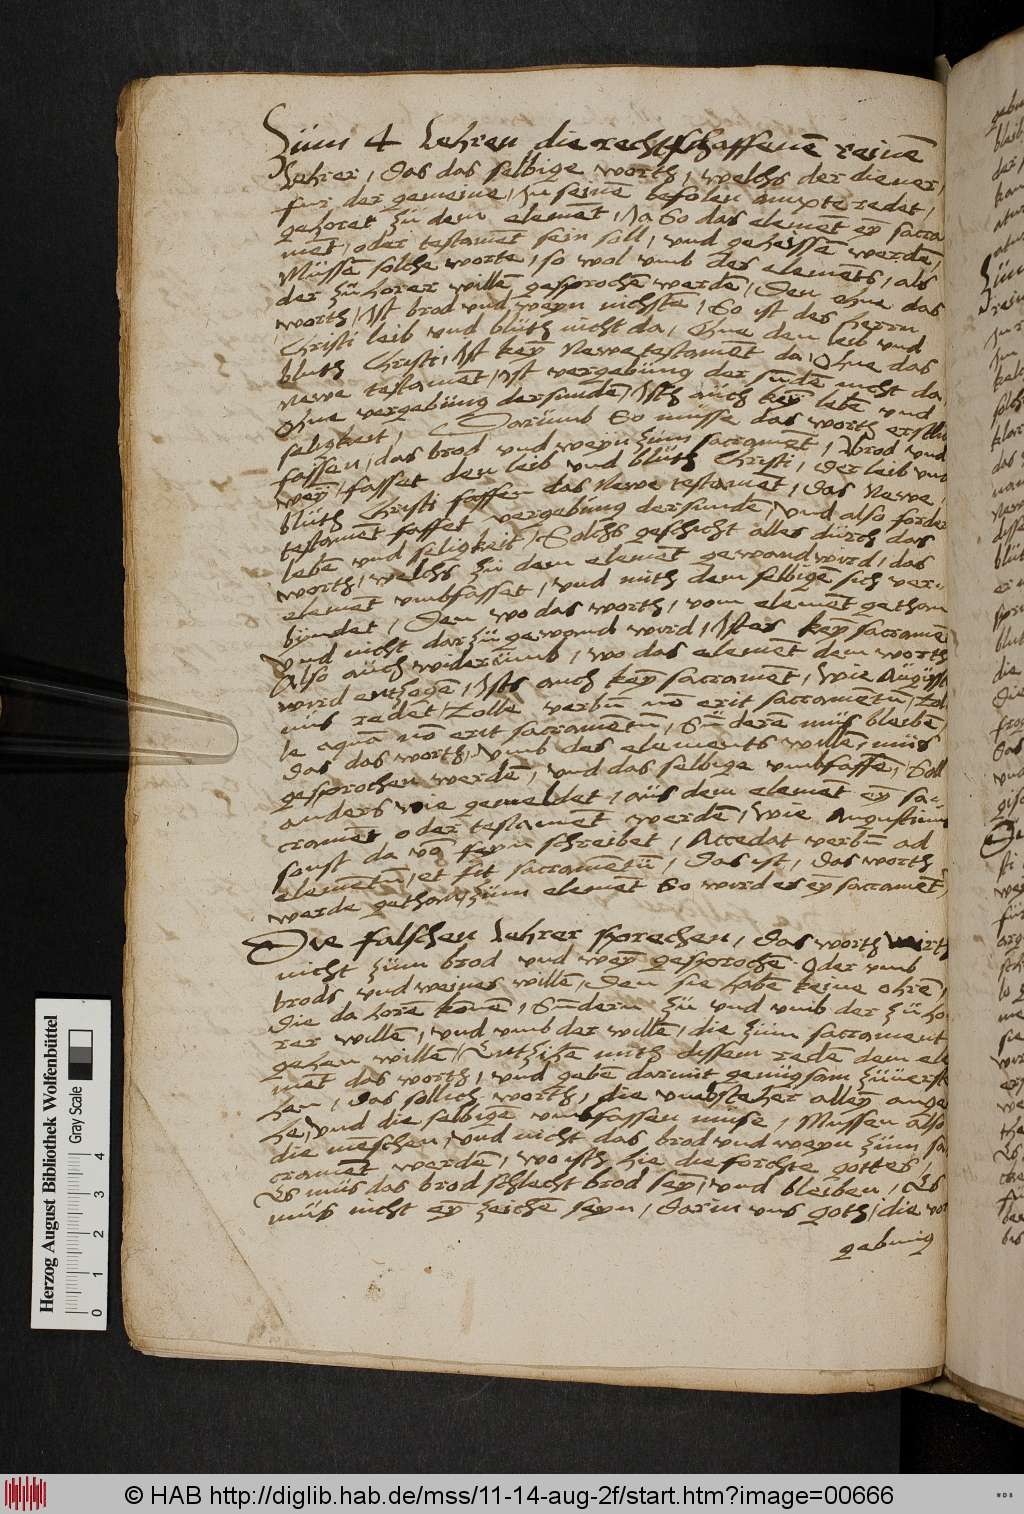 Züm 4 Lehren die rechtschaffenē reinē
Lehrer, das das selbige worth, welchs der diener,
fur der gemeine, zu seinē befolen ampte redet,
gehoret zü dem elemēt, Ja So das elemēt eȳ sacra
mēt, oder testamēt sein soll, und geheissēn werdē,
Müssē solche worte, so wol umb des elemēts, als
der zühorer willē gesprochē werdē, Den ohne das
worth, Ist brod und weyn nichstē, So ist des herrn
Christi leib und blüth nicht da, Ohne den leib und
bluth Christi, Ist keȳ Newe testamēt da, Ohne das
newe testamēt, Ist vergebüng der sundē nicht da,
Ohne vergebüng der sundē, Isth aüch keȳ lebē und
seligkeit, Darümb So musse das worth erstlich
fassen, das brod und weyn züm sacramēt, Brod und
weȳ, fasset den leib und blüth Christi, Der leib und
blüth Christi fassen das Newe testamēt, Das Newe,
testamēt fasset vergebüng der sundē, Und also forder
lebē und seligkeit, Solchs geschicht alles dürch das
worth, welchs zü dem elemēt gewand wird, das
elemēt umbfasset, und mith dem selbigē sich ver-
byndet, Den wo das worth, vom elemēt gethan
und nicht darzü gewand wird, Ist es keȳ sacramē
Also aüch widerümb, wo das elemēt dem worth
wird entzogē, Ists auch keȳ sacramēt, wie Aügüsti
nus redet, Tolle verbū nō erit sacramētū, Tol
le aquā nō erit sacramētū, Sūderē müs bleibē
Das das worth, umb des elements willē, müs
gesprochen werdē, und das selbige umbfassē, Soll
anders wie gemeldet, aüs dem elemēt eȳ sa-
cramēt oder testamēt werdē, wie Augustinus
sonst da vō feyn schreibet, Accedat verbū ad
elemētū, et fit sacramētū, Das ist, das worth
werde gethan, züm elemēt So wird es eȳ sacramēt,
Die falschen Lehrer sprechen, das worth wirth
nicht züm brod und weȳ gesprochē Oder umb
brods und weines willē, Den sie habē keine ohrē,
die da horē konē, Sūdern zü und umb der zü ho
rer willē, und umb der willē, die züm sacrament
gehen willē, Entzihē mith dissem redē dem ele
mēt das worth, und gebē darmit genügsam züverste
hen, das sollich worth, die umbsteher alleȳ ange
he, Und die selbigē umbfassen müse, Mussen also
die mēschen, und nicht das brod und weyn züm sa
cramēt werdē, Wo isth hie die forchte gottes,
Es müs das brod schlecht brod seȳ, und bleiben, Es
müß nicht eȳ zeichē seyn, darin uns goth, die ver
gebung
Herzog August Bibliothek Wolfenbüttel
Gray Scale
0 1 2 3 4
© HAB http://diglib.hab.de/mss/11-14-aug-2f/start.htm?image=00666